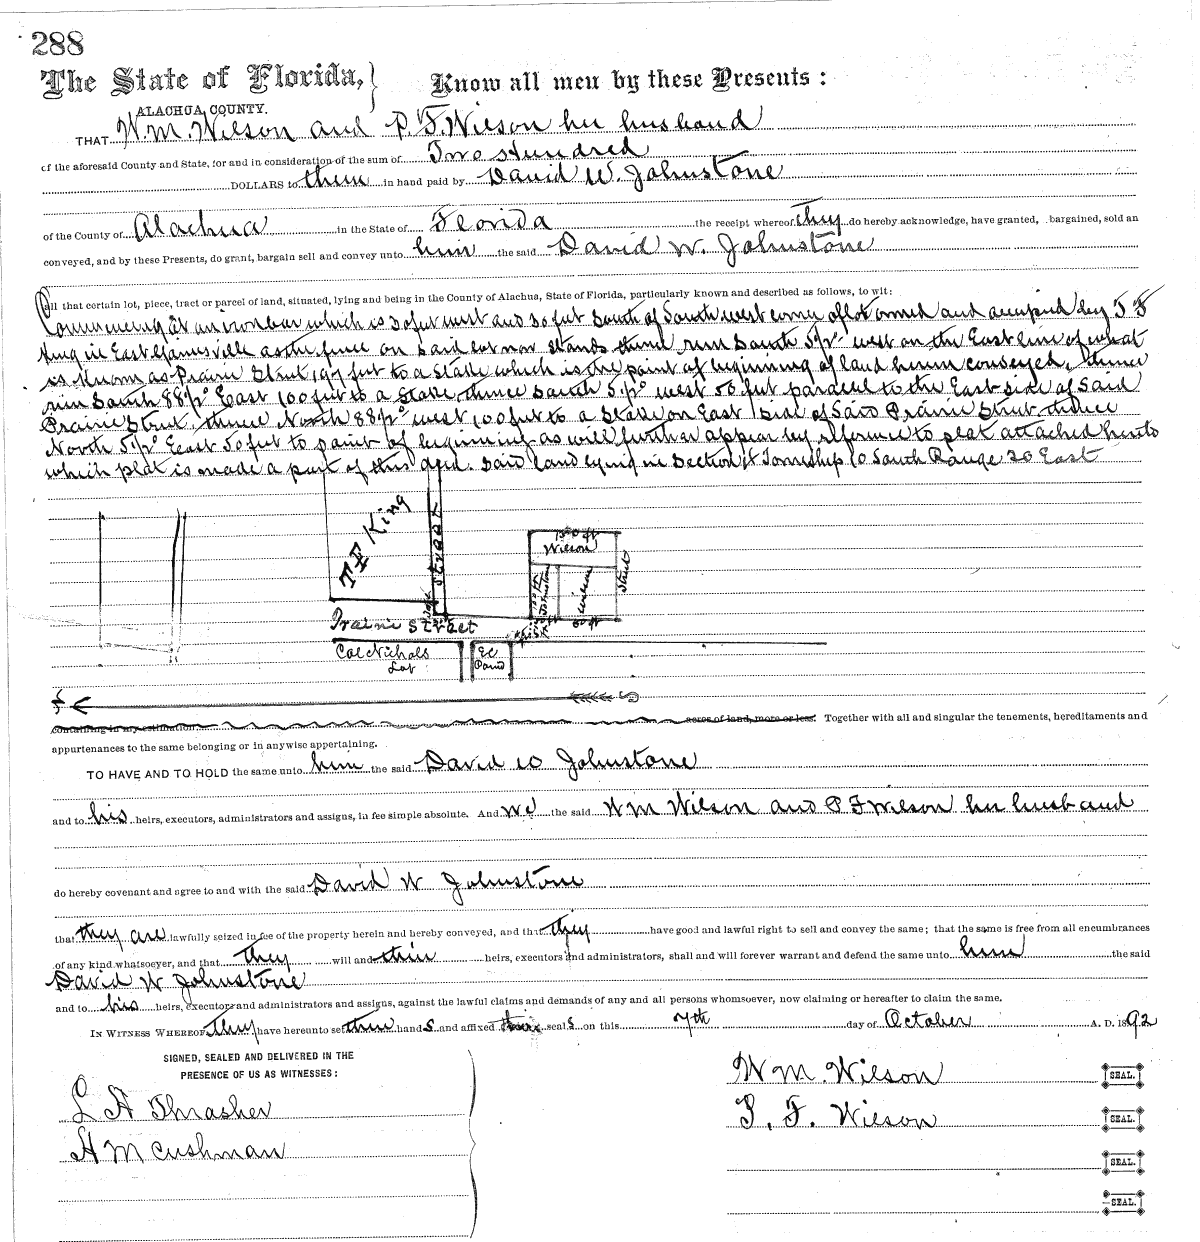 288
The State of Florida,} Know all men by these Presents :
ALACHUA COUNTY.
THAT W. M. Wilson and P F. Wilson her husband
of the aforesaid County and State, for and in consideration of the sum of Two Hundred
DOLLARS to them in hand paid by David W. Johnstone
of the County of Alachua in the State of Florida the receipt whereof they do hereby acknowledge, have granted, bargained, sold an
conveyed, and by these Presents, do grant, bargain sell and convey unto him the said David W. Johnstone
all that certain lot, piece, tract or parcel of land, situated, lying and being in the County of Alachua, State of Florida, particularly known and described as follows, to wit:
Commencing at an iron bar which is 30 feet west and 30 feet South of South west corner of lot owned and occupied by T F
King in East Gainesville as the fence on said lot now stands thence run South 5½° west on the East line of what
is known as Prairie Street 197 feet to a Stake which is the point of beginning of land herein conveyed, thence
run South 88½° East 100 feet to a Stake thence South 5½° west 50 feet parallel to the East side of Said
Prairie Street, thence North 88½° west 100 feet to a Stake on East side of Said Prairie Street thence
North 5½° East 50 feet to point of beginning as will further appear by reference to plat attached hereto
which plat is made a part of this deed. Said land lying in Section 4 Township 10 South Range 20 East
T F King
Street
150 ft
Wilson
Johnstone
Wilson
Street
50 ft
Prairie Street
Col Nichols
Lot
EC
containing in any estimation acres of land, more or less. Together with all and singular the tenements, hereditaments and
appurtenances to the same belonging or in anywise appertaining.
TO HAVE AND TO HOLD the same unto him the said David W Johnstone
and to his heirs, executors, administrators and assigns, in fee simple absolute. And we the said W M Wilson and P F Wilson her husband
do hereby covenant and agree to and with the said David W Johnstone
that they are lawfully seized in fee of the property herein and hereby conveyed, and that they have good and lawful right to sell and convey the same; that the same is free from all encumbrances
of any kind whatsoever, and that they will and their heirs, executors and administrators, shall and will forever warrant and defend the same unto him the said
David W Johnstone
and to his heirs, executors and administrators and assigns, against the lawful claims and demands of any and all persons whomsoever, now claiming or hereafter to claim the same.
IN WITNESS WHEREOF They have hereunto set their hands and affixed their seals on this 7th day of October A. D. 1892
SIGNED, SEALED AND DELIVERED IN THE
PRESENCE OF US AS WITNESSES:
L A Thrasher
H M Cushman
W M. Wilson SEAL.
P. F. Wilson SEAL.
SEAL.
SEAL.